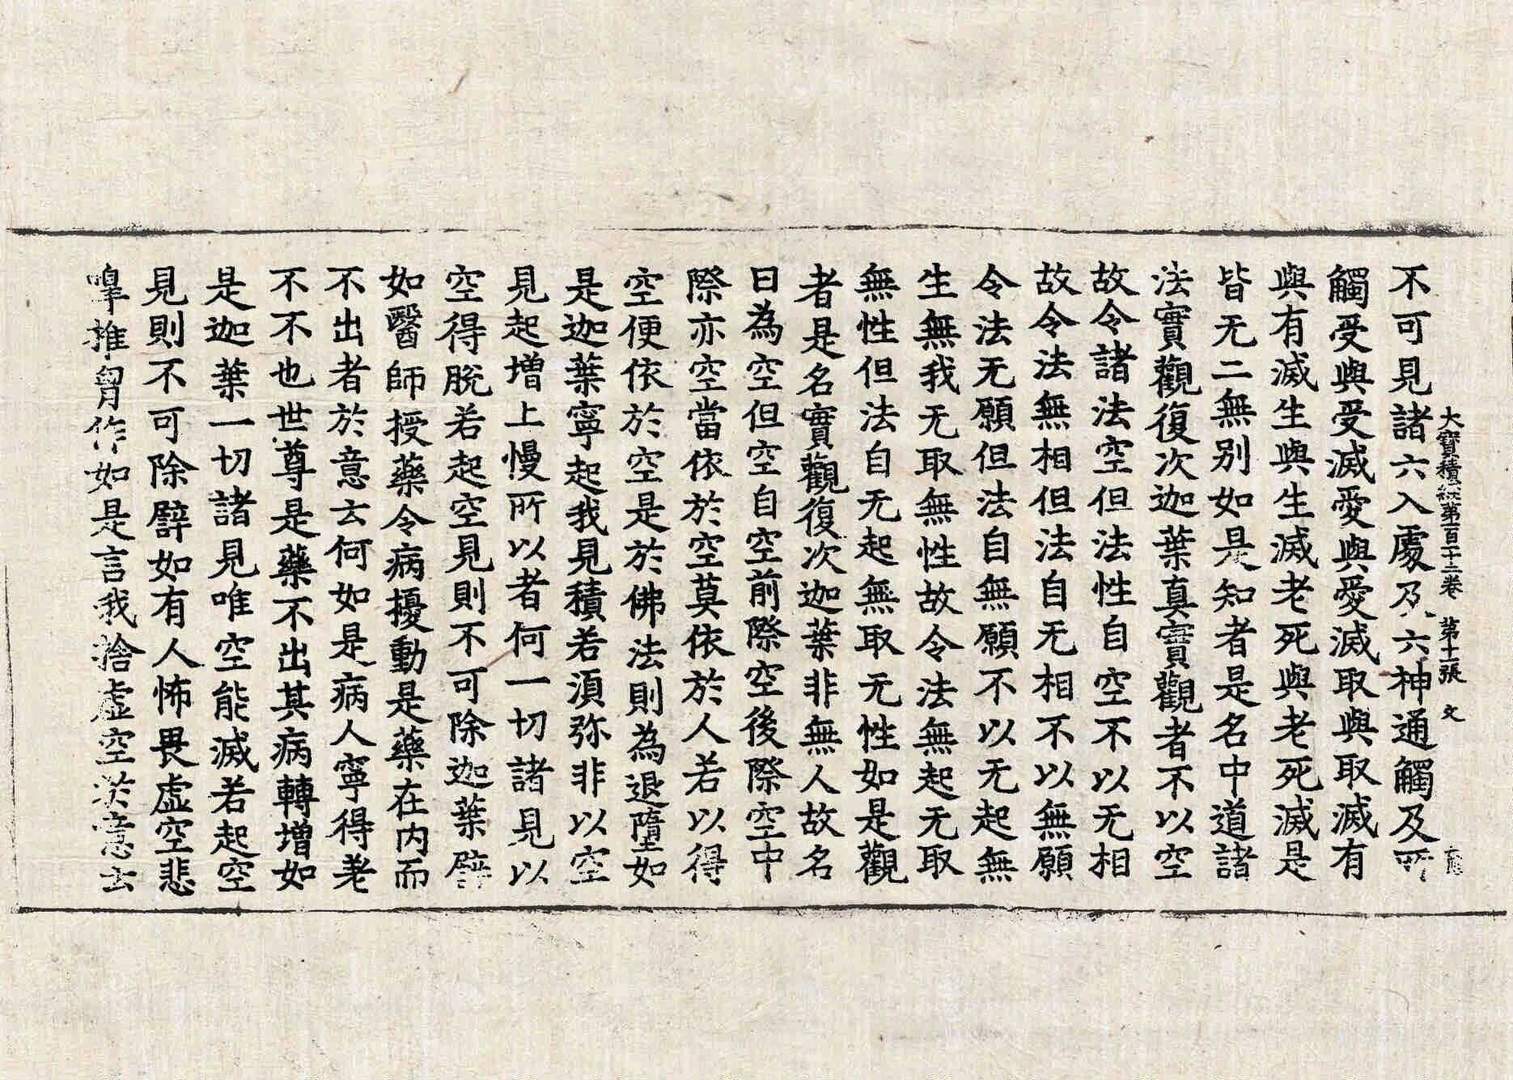 大寶積經第百十二卷 第十一張 文
不可見諸六入處及六神通觸及所
觸受與受滅愛與愛滅取與取滅有
與有滅生與生滅老死與老死滅是
皆无二無別如是知者是名中道諸
法實觀復次迦葉真實觀者不以空
故令諸法空但法性自空不以无相
故令法無相但法自无相不以無願
令法无願但法自無願不以无起無
生無我无取無性故令法無起无取
無性但法自无起無取无性如是觀
者是名實觀復次迦葉非無人故名
曰為空但空自空前際空後際空中
際亦空當依於空莫依於人若以得
空便依於空是於佛法則為退墮如
是迦葉寧起我見積若湏弥非以空
見起增上慢所以者何一切諸見以
空得脫若起空見則不可除迦葉譬
如醫師授藥令病擾動是藥在内而
不出者於意云何如是病人寧得老
不不也世尊是藥不出其病轉增如
是迦葉一切諸見唯空能滅若起空
見則不可除譬如有人怖畏虛空悲
嘷推胷作如是言我捨虛空於意云